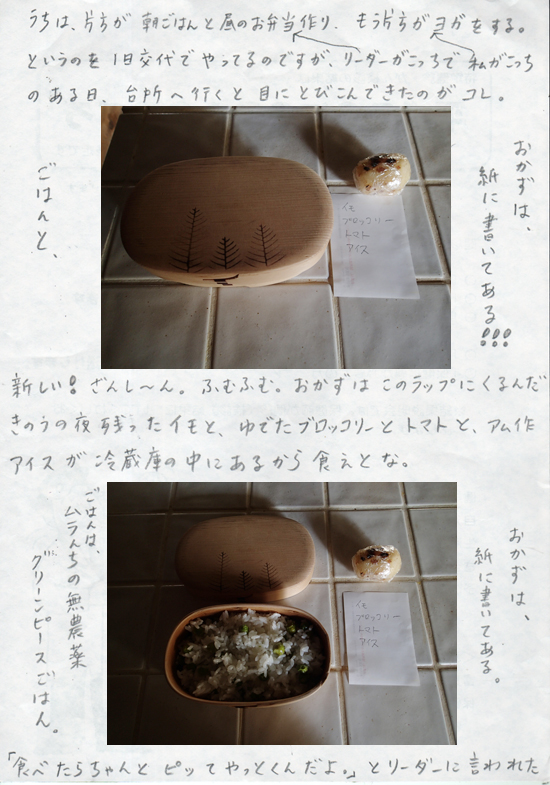 うちは、片方が 朝ごはんと昼のお弁当作り、もう片方がヨガをする。
というのを1日交代でやってるのですが、リーダーがこっちで 私がこっち
のある日、台所へ行くと目にとびこんできたのがコレ。
ごはんと、
おかずは、
紙に書いてある!!!
イモ
ブロッコリー
トマト
アイス
新しい! ざんし〜ん。ふむふむ。おかずはこのラップにくるんだ
きのうの夜残ったイモと、ゆでたブロッコリーとトマトと、アム作
アイスが冷蔵庫の中にあるから食えとな。
ごはんは、
ムラんちの無農薬
グリーンピースごはん。
おかずは、
紙に書いてある。
イモ
ブロッコリー
トマト
アイス
「食べたらちゃんとピッてやっとくんだよ。」とリーダーに言われた